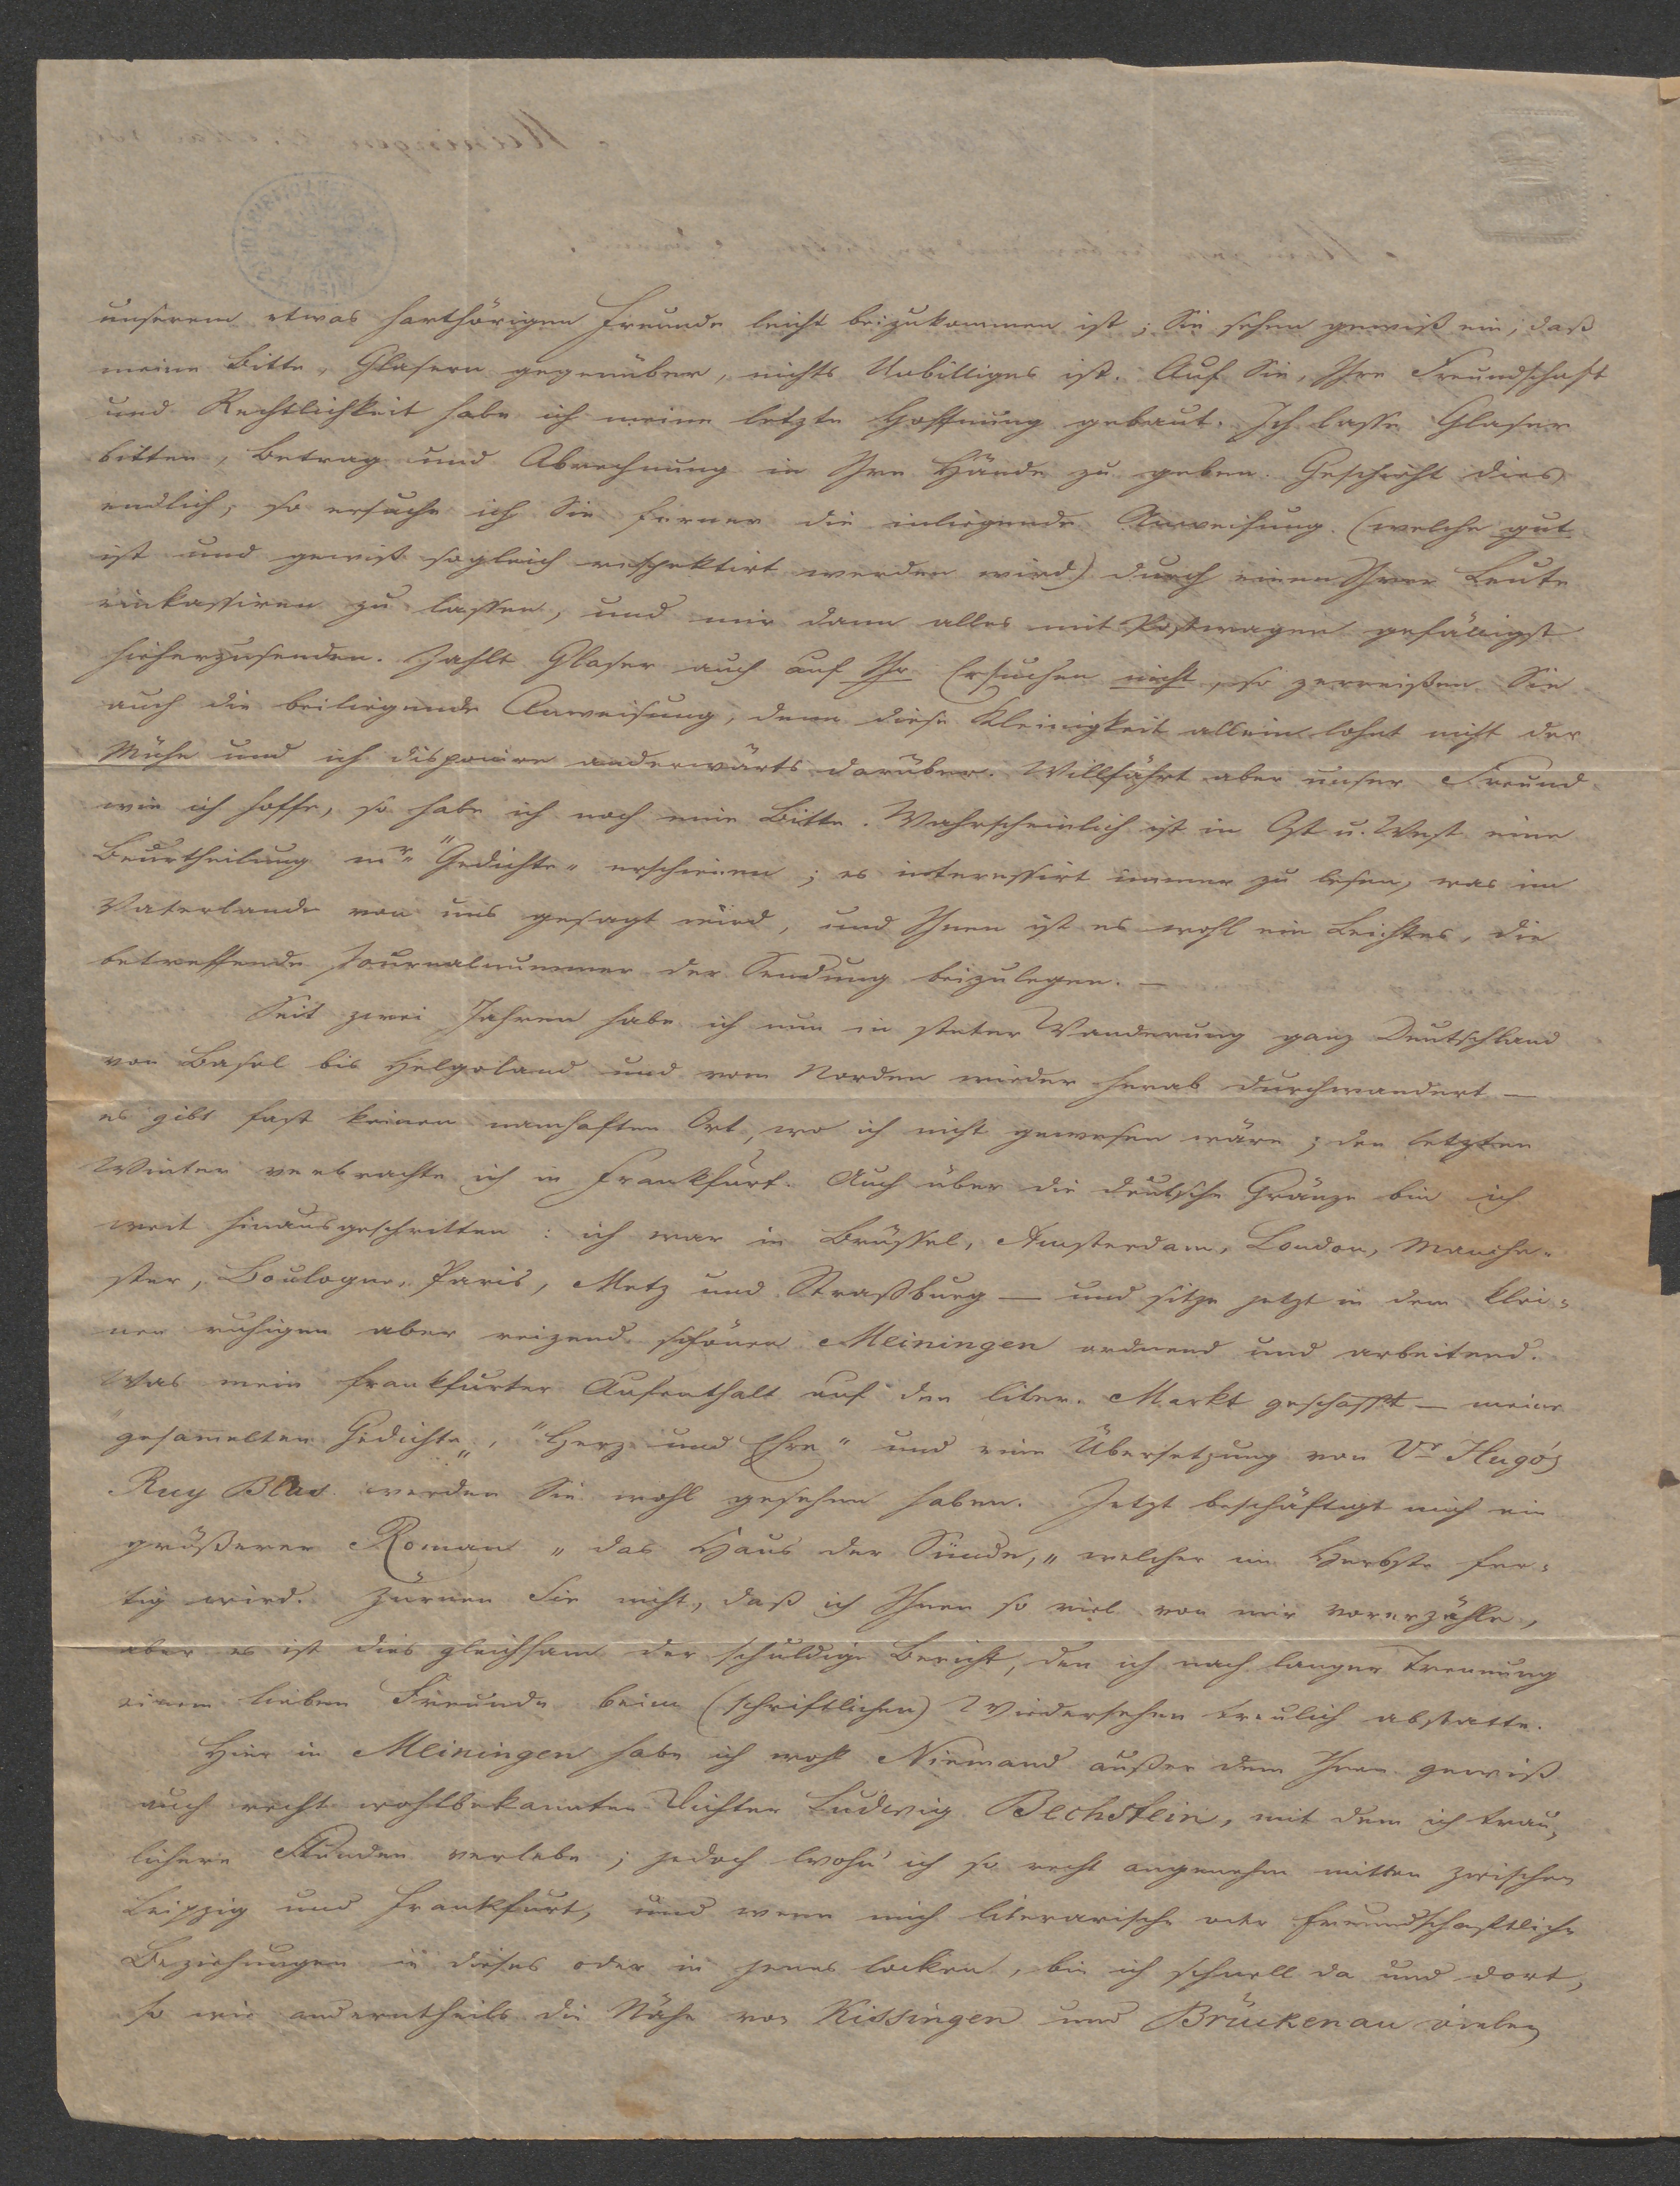 unserem etwas harthörigen Freunde leicht beizukommen ist; Sie sehen gewiß ein, daß
meine Bitte, Glasern gegenüber, nichts Unbilliges ist. Auf Sie, Ihre Freundschaft
und Rechtlichkeit habe ich meine letzte Hoffnung gebaut. Ich lasse Glaser
bitten, Betrag und Abrechnung in Ihre Hände zu geben. Geschieht dies
endlich, so ersuche ich Sie ferner die inliegende Anweisung (welche gut
ist und gewiß sogleich respektirt werden wird) durch einen Ihrer Leute
einkassiren zu lassen, und mir dann alles mit Postwagen gefälligst
hieherzusenden. Zahlt Glaser auch auf Ihr Ersuchen nicht, so zerreißen Sie
auch die beiliegende Anweisung, denn diese Kleinigkeit allein lohnt nicht der
Mühe und ich disponire anderwärts darüber. Willfährt aber unser Freund
wie ich hoffe, so habe ich noch eine Bitte. Wahrscheinlich ist in Ost u. West eine
Beurtheilung mr "Gedichte" erschienen; es interessirt immer zu lesen, was im
Vaterlande von uns gesagt wird, und Ihnen ist es wohl ein Leichtes, die
betreffende Journalnummer der Sendung beizulegen. —
Seit zwei Jahren habe ich nun in steter Wanderung ganz Deutschland
von Basel bis Helgoland und vom Norden wieder herab durchwandert —
es gibt fast keinen namhaften Ort, wo ich nicht gewesen wäre; den letzten
Winter verbrachte ich in Frankfurt. Auch über die deutsche Gränze bin ich
weit hinausgeschritten: ich war in Brüssel, Amsterdam, London, Manche-
ster, Boulogne, Paris, Metz und Straßburg — und sitze jetzt in dem klei-
nen ruhigen aber reizend schönen Meiningen ordnend und arbeitend.
Was mein frankfurter Aufenthalt auf den liter. Markt geschafft — meine
"gesammelten Gedichte", "Herz und Ehre" und eine Übersetzung von Vr Hugo's
Ruy Blas werden Sie wohl gesehen haben. Jetzt beschäftigt mich ein
größerer Roman "das Haus der Sünde," welcher im Herbste fer-
tig wird. Zürnen Sie nicht, daß ich Ihnen so viel von mir vorerzähle,
aber es ist dies gleichsam der schuldige Bericht, den ich nach langer Trennung
einem lieben Freunde beim (schriftlichen) Wiedersehen treulich abstatte.
Hier in Meiningen habe ich wohl Niemand außer dem Ihnen gewiß
auch recht wohlbekannten Dichter Ludwig Bechstein, mit dem ich trau-
lichere Stunden verlebe; jedoch wohn' ich so recht angenehm mitten zwischen
Leipzig und Frankfurt, und wenn mich literarische oder freundschaftliche
Beziehungen in dieses oder in jenes locken, bin ich schnell da und dort,
so wie anderntheils die Nähe von Kissingen und Brückenau vielen